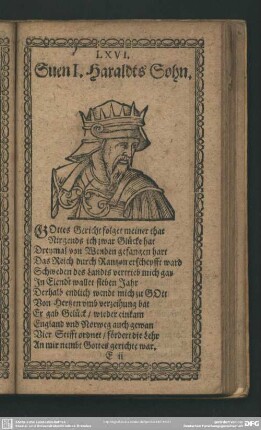 LXVI.
Suen I. Haraldts Sohn.
GOttes Gericht folget meiner that
Nirgends ich zwar Glücke hat
Dreymal von Wenden gefangen hart
Das Reich durch Rantzon erschepfft ward
Schweden des Landes vertrieb mich gar
In Elendt wallet sieben Jahr
Derhalb endlich wendt mich zu GOtt
Von Hertzen umb verzeihung bat
Er gab Gelück / wieder einkam
England und Norweg auch gewan
Vier Stifft ordnet / fördert die Lehr
An mir nembt Gottes gerichte war.
E ii